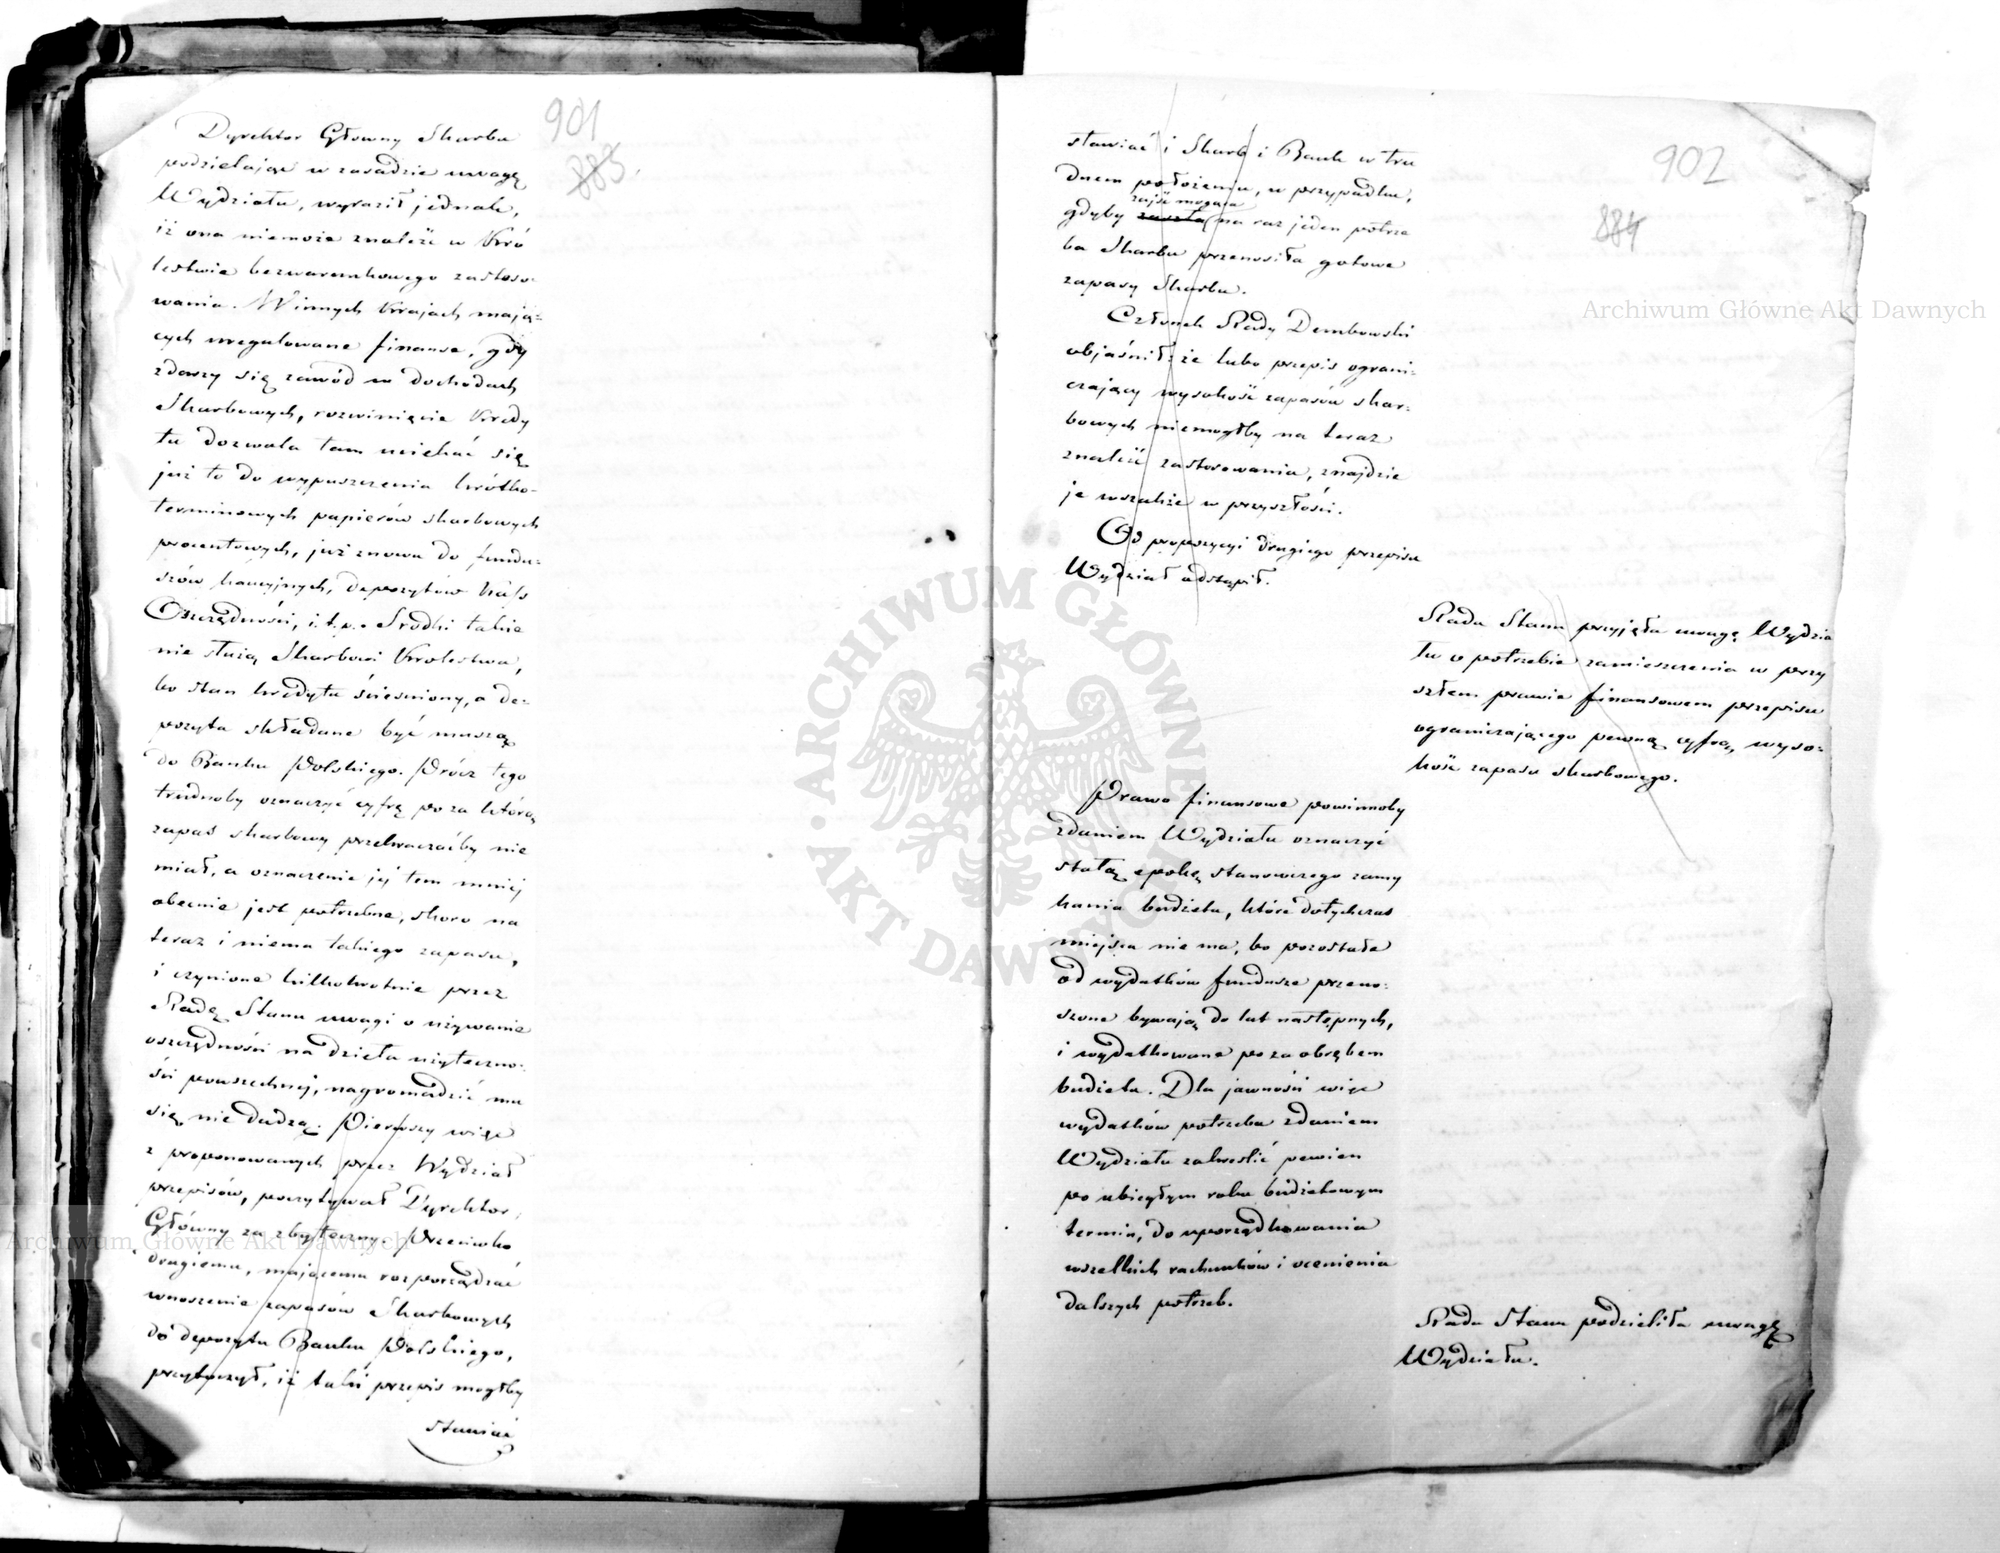 901
883
Dyrektor Główny Skarbu
podzielając w zasadzie uwagę
Wydziału, wyraził jednak,
iż ona niemoże znaleść w Kró
lestwie bezwarunkowego zastoso-
wania. W innych Krajach mają-
cych uregulowane finanse, gdy
zdarzy się zawód w dochodach
Skarbowych, rozwinięcie Kredy
tu dozwala tam uciekać się
już to do wypuszczenia krótko-
terminowych papierów skarbowych
procentowych, już znowu do fundu-
szów kaucyjnych, depozytów Kass
Oszczędności, i.t.p. Srodki takie
nie służą Skarbowi Krolestwa,
bo stan kredytu ścieśniony, a de-
pozyta składane być muszą
do Banku Polskiego. Prócz tego
trudnoby oznaczyć cyfrę po za którą
zapas skarbowy przekraczaćby nie
miał, a oznaczenie jéj tem mniéj
obecnie jest potrzebne, skoro na
teraz i niema takiego zapasu,
i czynione kilkokrotnie przez
Radę Stanu uwagi o używanie
oszczędności na dzieła użyteczno-
ści powszechnéj, nagromadzić mu
się nie dadzą. Pierwszy więc
z proponowanych przez Wydział
przepisów, poczytywał Dyrektor
Główny za zbyteczny. Przeciwko
drugiemu, mającemu rozporządzać
wnoszenie zapasów Skarbowych
do depozytu Banku Polskiego,
przytoczył, iż taki przepis mogłby
stawiać
902
884
stawiać i Skarb i Bank w tru
dnem położeniu, w przypadku,
zajść mogąca
gdyby zaszła na raz jeden potrze
ba Skarbu przenosiła gotowe
zapasy Skarbu.
Członek Rady Dembowski
objaśnił, że lubo przepis ograni-
czający wysokość zapasów skar-
bowych niemogłby na teraz
znaleść zastosowania, znajdzie
je wszakże w przyszłości.
Od propozycyi drugiego przepisu
Wydział odstąpił.
Rada Stanu przyjęła uwagę Wydzia
łu o potrzebie zamieszczenia w przy
szłem prawie finansowem przepisu
ograniczającego pewną cyfrą, wyso-
kość zapasu skarbowego.
Prawo finansowe powinnoby
zdaniem Wydziału oznaczyć
stałą epokę stanowczego zamy
kania budżetu, które dotychczas
miejsca nie ma, bo pozostałe
od wydatków fundusze przeno-
szone bywają do lat następnych,
i wydatkowane po za obrębem
budżetu. Dla jawności więc
wydatków potrzeba zdaniem
Wydziału zakreslić pewien
po ubiegłym roku budżetowym
termin, do uporządkowania
wszelkich rachunków i ocenienia
dalszych potrzeb.
Rada Stanu podzieliła uwagę
Wydziału.
Archiwum Główne Akt Dawnych
Archiwum Główne Akt Dawnych
ARCHIWUM GŁÓWNE AKT DAWNYCH